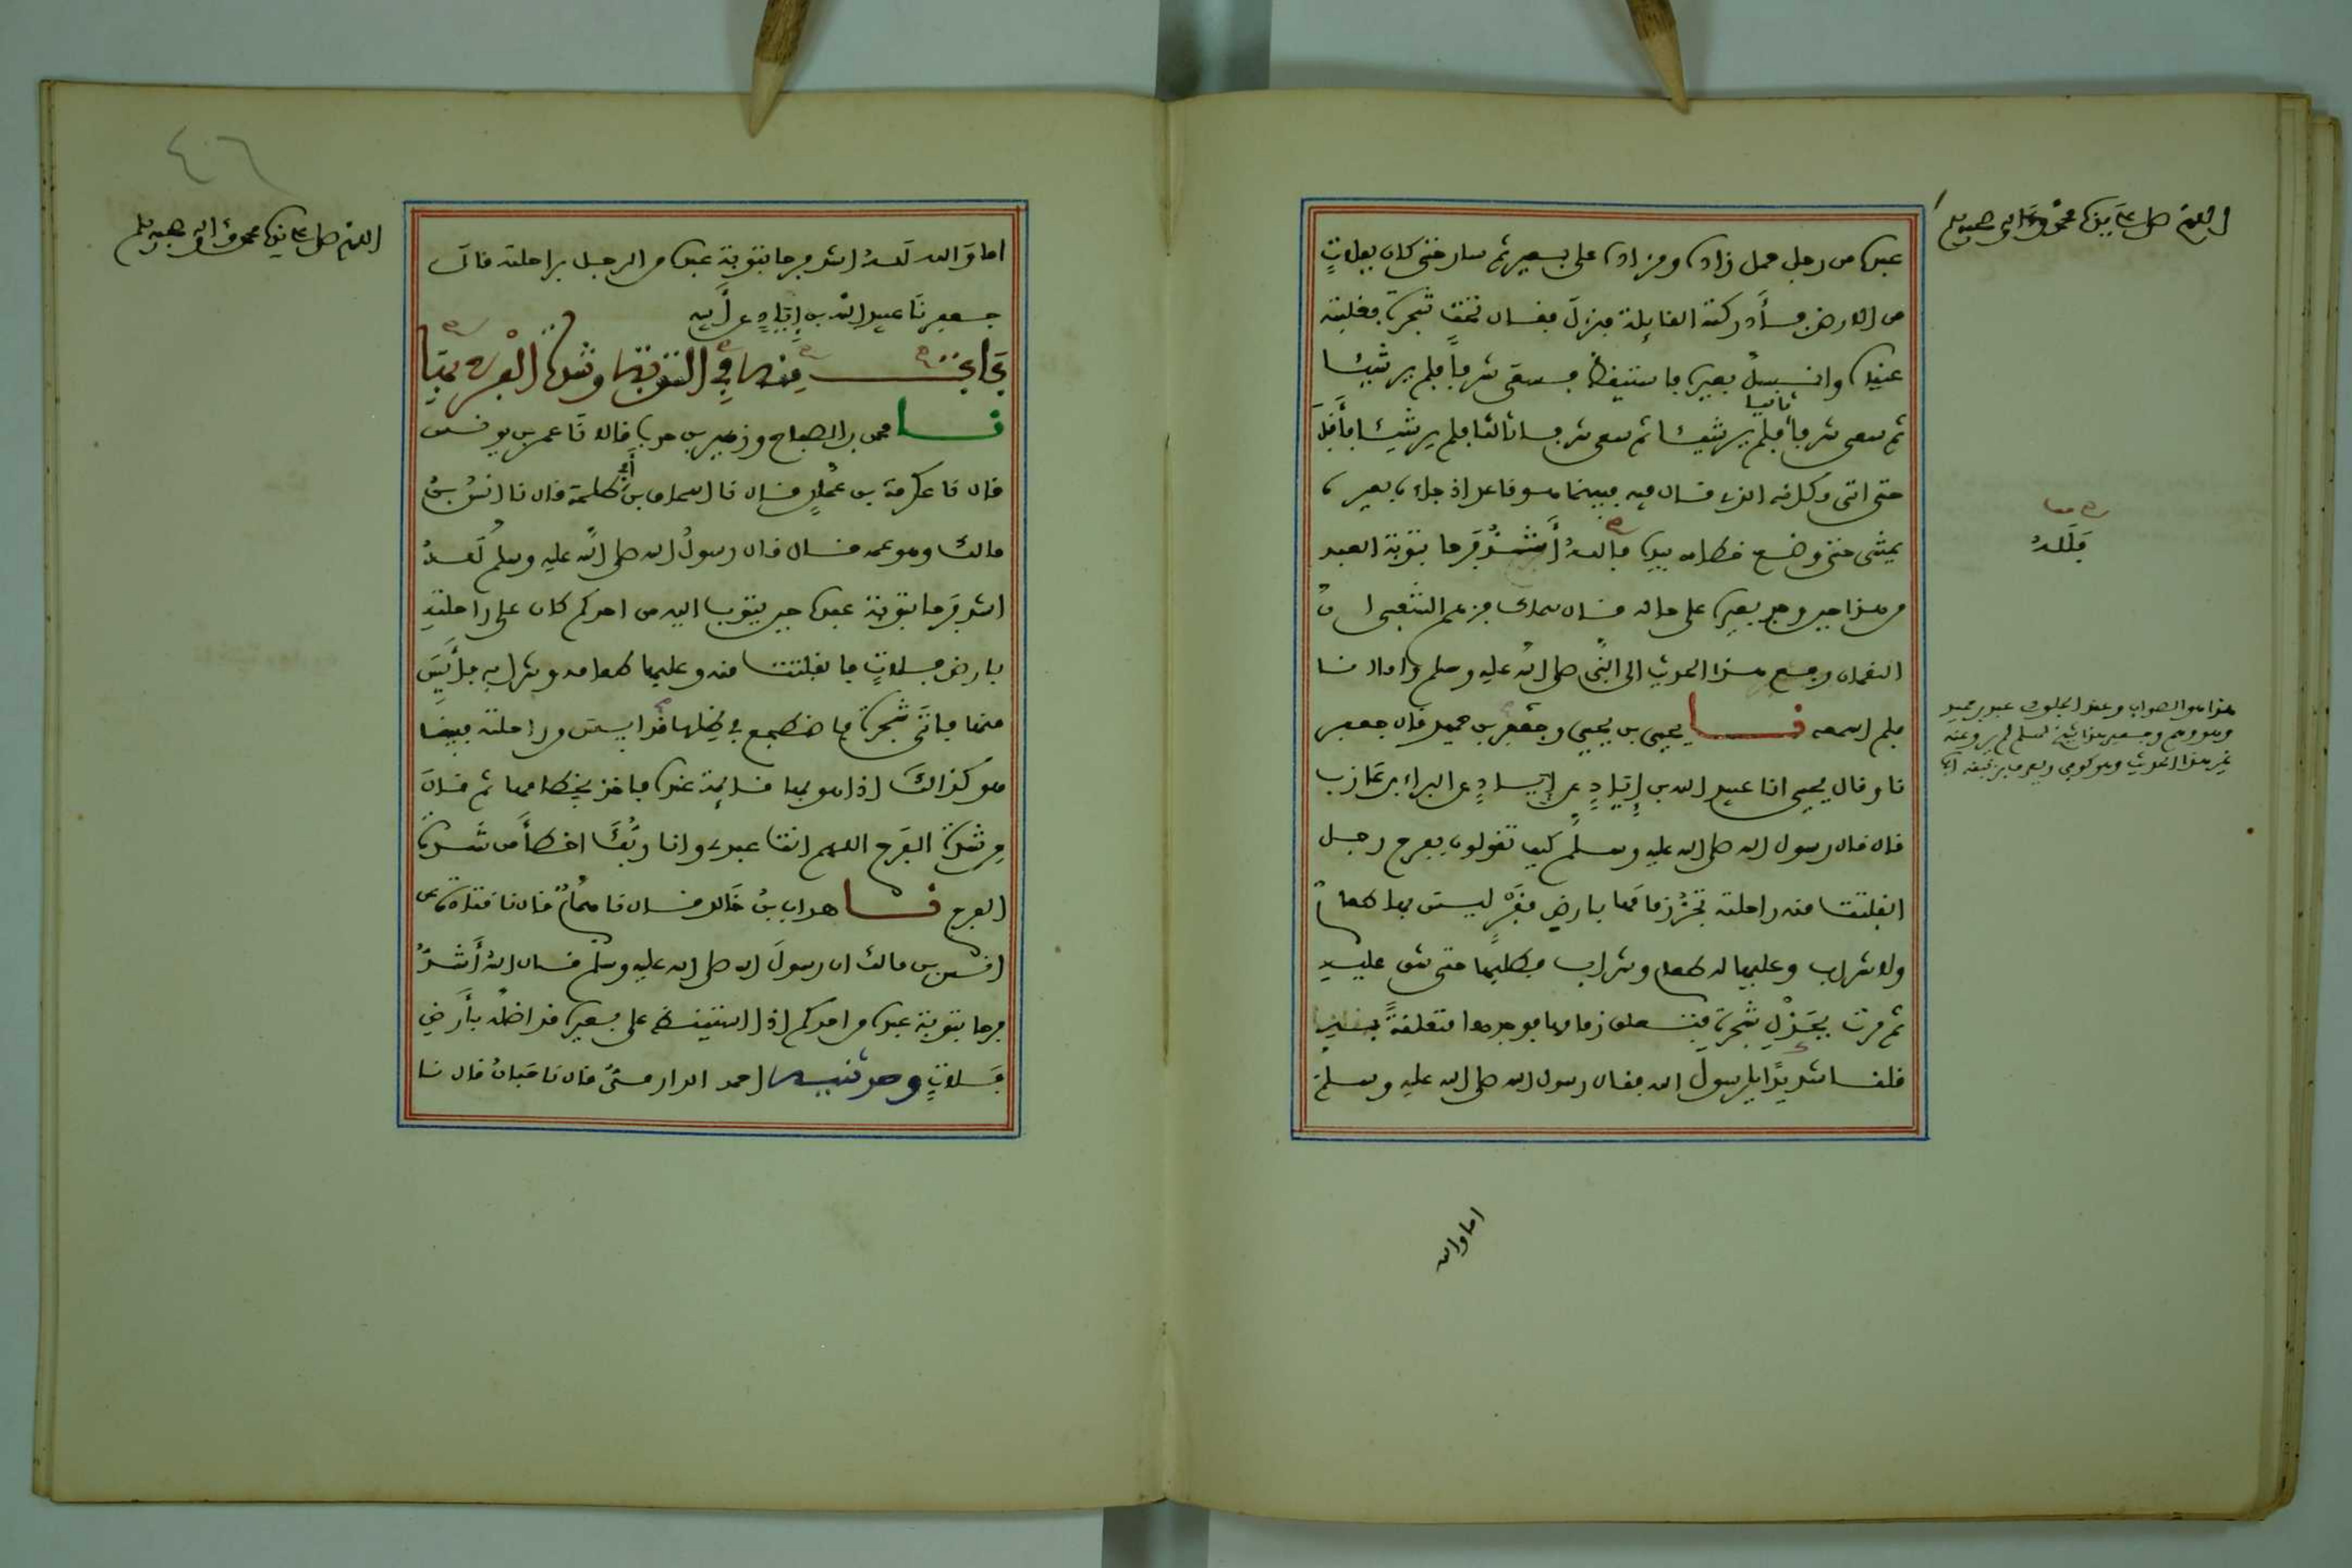 اللهم صل على سيدنا محمد وعلى اله وصحبه وسلم
عبده من رجل حمل زاده ومزاده على بعير ثم سار حتى كان بفلاة
من الارض فأدركته القايلة فنزل فقال تحت شجرة فغلبته
عينه وانسل بعيره فاستيقظ فسعى شرفا فلم ير شيئا
ثم سعى شرفا ثانيا فلم ير شيئا ثم سعى شرفا ثالثا فلم ير شيئا فأقبل
حتى اتى مكانه الذي قال فيه فبينما هو قاعد اذ جاءه بعيره
يمشي حتى وضع خطامه بيده فالله أشد فرحا بتوبة العبد
من هذا حين وجد بعيره على حاله قال سماك فزعم الشعبي ان
النعمان رفع هذا الحديث الى النبي صلى الله عليه وسلم واما انا
فلم اسمعه نا يحيى بن يحيى وجعفر بن حميد قال جعفر
نا وقال يحيى انا عبيد الله بن إياد عن إياد عن البراء بن عازب
قال قال رسول الله صلى الله عليه وسلم كيف تقولون بفرح رجل
انفلتت منه راحلته تجر زمامها بارض قفر ليس بها طعام
ولا شراب وعليها له طعام وشراب فطلبها حتى شق عليه
ثم مرت بجذل شجرة فتعلق زمامها فوجدها متعلقة به
قلنا شديدا يا رسول الله فقال رسول الله صلى الله عليه وسلم
صح معا
فلله
هذا هو الصواب وعند الجلودي عبد بن حميد
وهو وهم وجعفر هذا شيخ لمسلم لم يرو عنه
غير هذا الحديث وهو كوفي
اما والله
٤٠٦
اللهم صل على سيدنا محمد وعلى اله وصحبه وسلم
اما والله لله اشد فرحا بتوبة عبده من الرجل براحلته قال
جعفر نا عبيد الله بن إياد عن أبيه
باب منه في التوبة وشدة الفرح بها
نا محمد بن الصباح وزهير بن حرب قالا نا عمر بن يونس
قال نا عكرمة بن عمار قال نا اسحاق بن أبي طلحة قال نا انس بن
مالك وهو عمه قال قال رسول الله صلى الله عليه وسلم لله
اشد فرحا بتوبة عبده حين يتوب اليه من احدكم كان على راحلته
بارض فلاة فانفلتت منه وعليها طعامه وشرابه فأيس
منها فاتى شجرة فاضطجع في ظلها قد ايس من راحلته فبينا
هو كذلك اذا هو بها قائمة عنده فاخذ بخطامها ثم قال
من شدة الفرح اللهم انت عبدي وانا ربك اخطأ من شدة
الفرح نا هداب بن خالد قال نا همام قال نا قتادة عن
انس بن مالك ان رسول الله صلى الله عليه وسلم قال لله أشد
فرحا بتوبة عبده من احدكم اذا استيقظ على بعيره قد اضله بأرض
فلاة وحدثنيه احمد الدارمي قال نا حبان قال نا